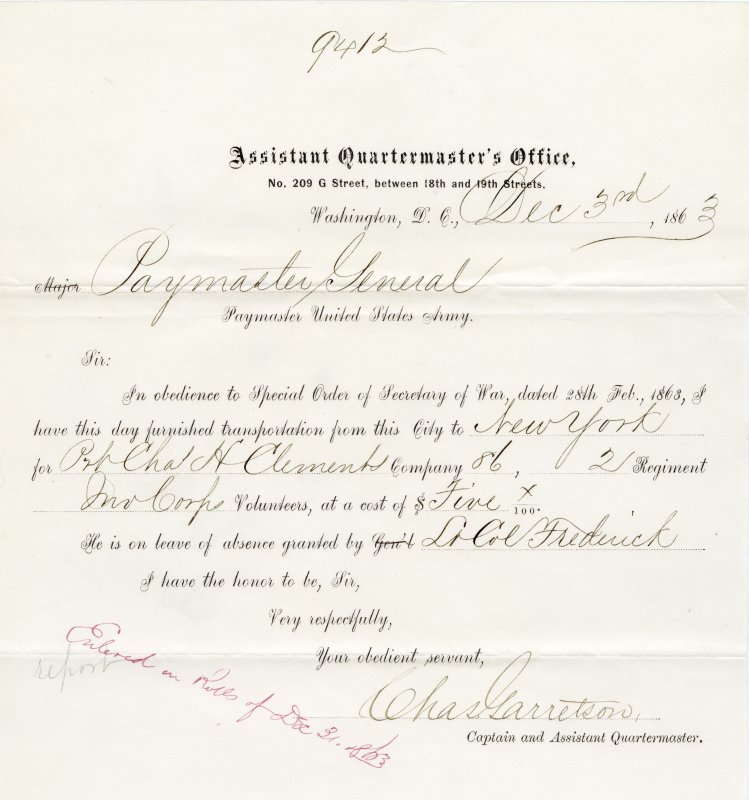 9412
Assistant Quartermaster's Office,
No. 209 G Street, between 18th and 19th Streets.
Washington, D. C., Dec 3rd, 1863
Major Paymaster General
Paymaster United States Army.
Sir:
In obedience to Special Order of Secretary of War, dated 28th Feb., 1863, I
have this day furnished transportation from this City to New York
for Prt Chas H Clements Company 86, 2 Regiment
Inv Corps Volunteers, at a cost of $ Five x/100.
He is on leave of absence granted by Gen'l Lt Col Frederick
I have the honor to be, Sir,
Very respectfully,
Your obedient servant,
Entered on Rolls of Dec 31. 1863
report
Chas Garretson,
Captain and Assistant Quartermaster.